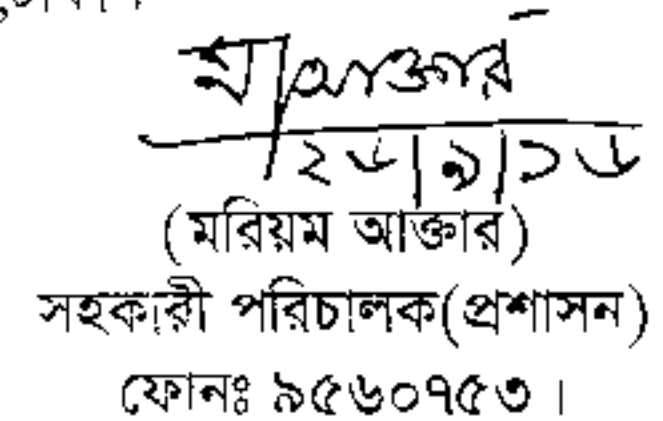 আক্তার
২৬|৯|১৬
(মরিয়ম আক্তার)
সহকারী পরিচালক(প্রশাসন)
ফোনঃ ৯৫৬০৭৫৩।